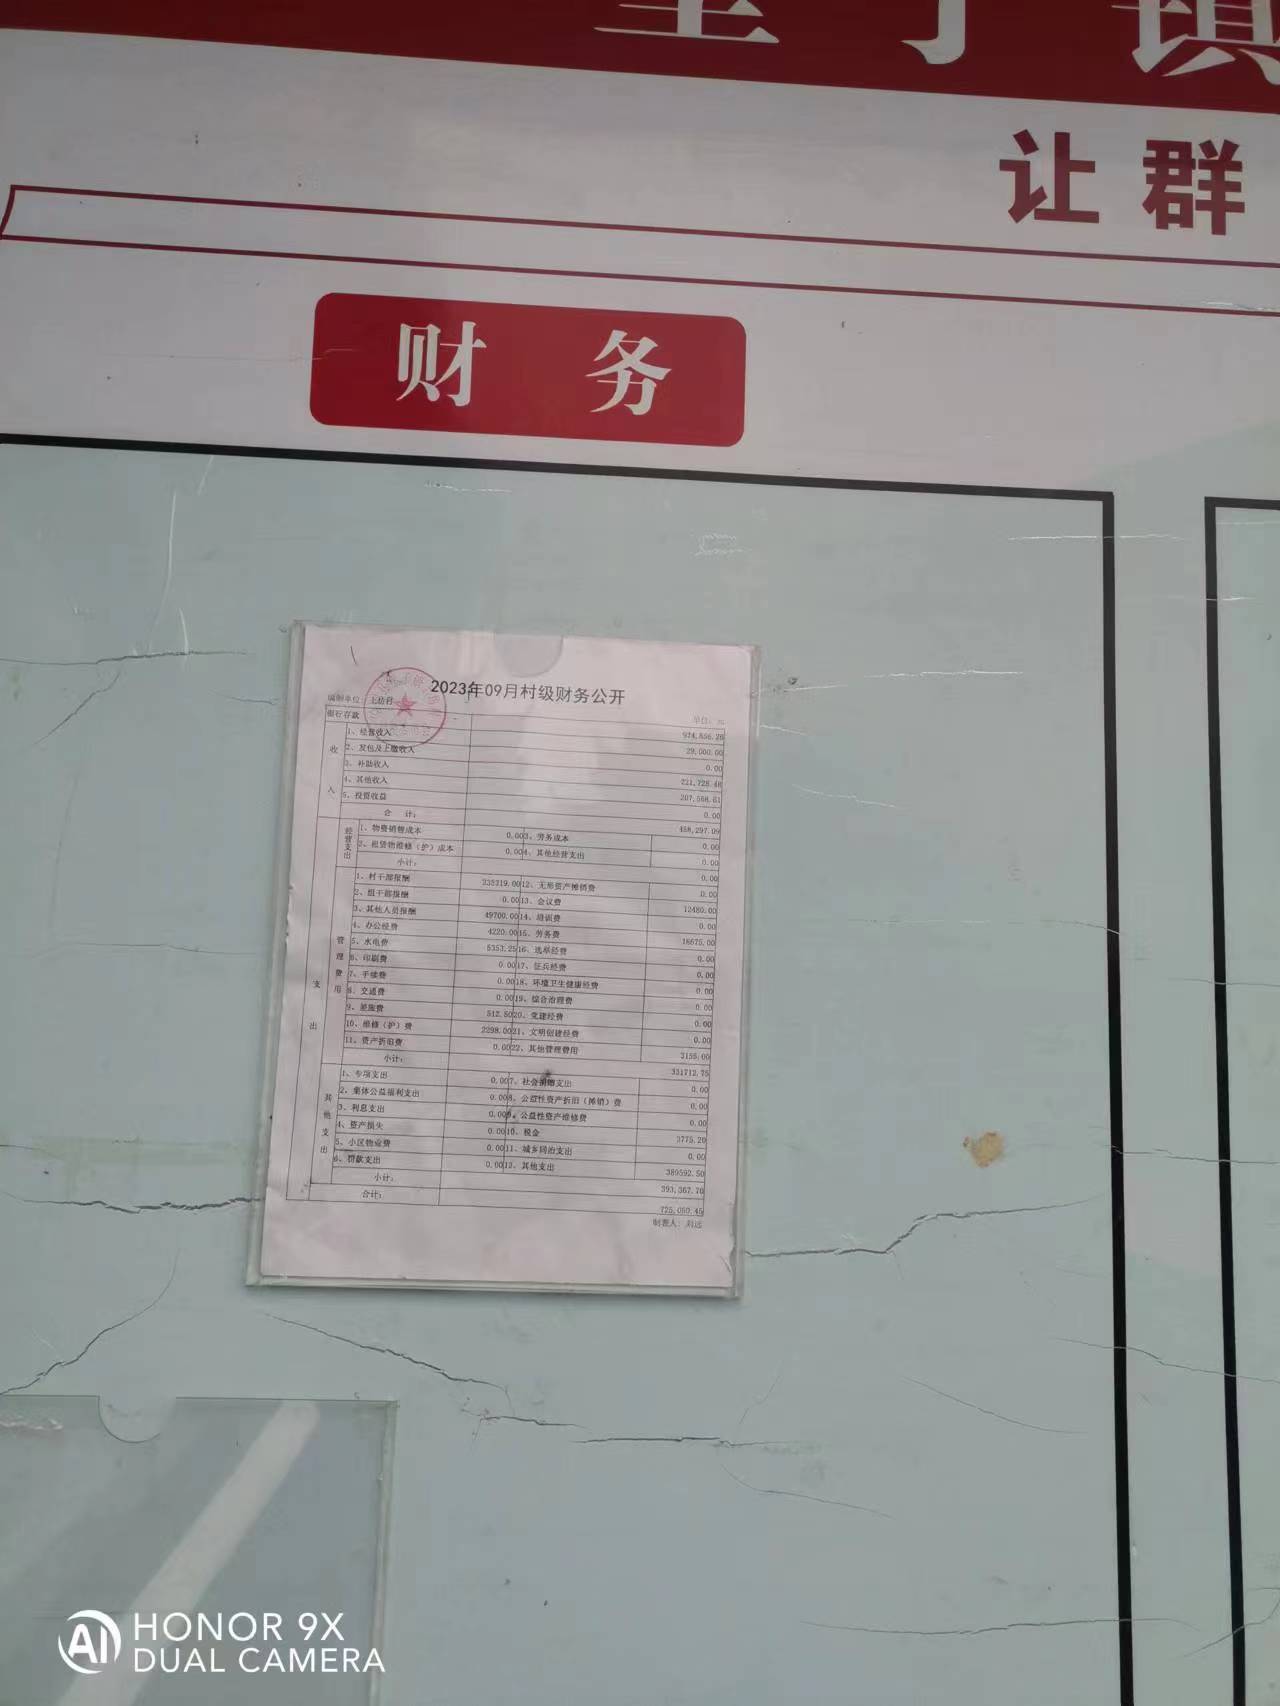 镇
让群
财务
2023年09月村级财务公开
编制单位：上坊村 单位：元
银行存款 924,856.26
收入
1、经营收入 29,000.00
2、发包及上缴收入 0.00
3、补助收入 221,728.48
4、其他收入 207,568.61
5、投资收益 0.00
合 计： 458,297.09
支出
经营支出
1、物资销售成本 0.00 3、劳务成本 0.00
2、租赁物维修（护）成本 0.00 4、其他经营支出 0.00
小计： 0.00
管理费用
1、村干部报酬 235319.00 12、无形资产摊销费 0.00
2、组干部报酬 0.00 13、会议费 12480.00
3、其他人员报酬 49700.00 14、培训费 0.00
4、办公经费 4220.00 15、劳务费 18675.00
5、水电费 5353.25 16、选举经费 0.00
6、印刷费 0.00 17、征兵经费 0.00
7、手续费 0.00 18、环境卫生健康经费 0.00
8、交通费 0.00 19、综合治理费 0.00
9、差旅费 512.50 20、党建经费 0.00
10、维修（护）费 2298.00 21、文明创建经费 0.00
11、资产折旧费 0.00 22、其他管理费用 3155.00
小计： 331712.75
其他支出
1、专项支出 0.00 7、社会捐赠支出 0.00
2、集体公益福利支出 0.00 8、公益性资产折旧（摊销）费 0.00
3、利息支出 0.00 9、公益性资产维修费 0.00
4、资产损失 0.00 10、税金 3775.20
5、小区物业费 0.00 11、城乡同治支出 0.00
6、罚款支出 0.00 12、其他支出 389592.50
小计： 393,367.70
合计： 725,080.45
制表人：刘远
HONOR 9X
DUAL CAMERA